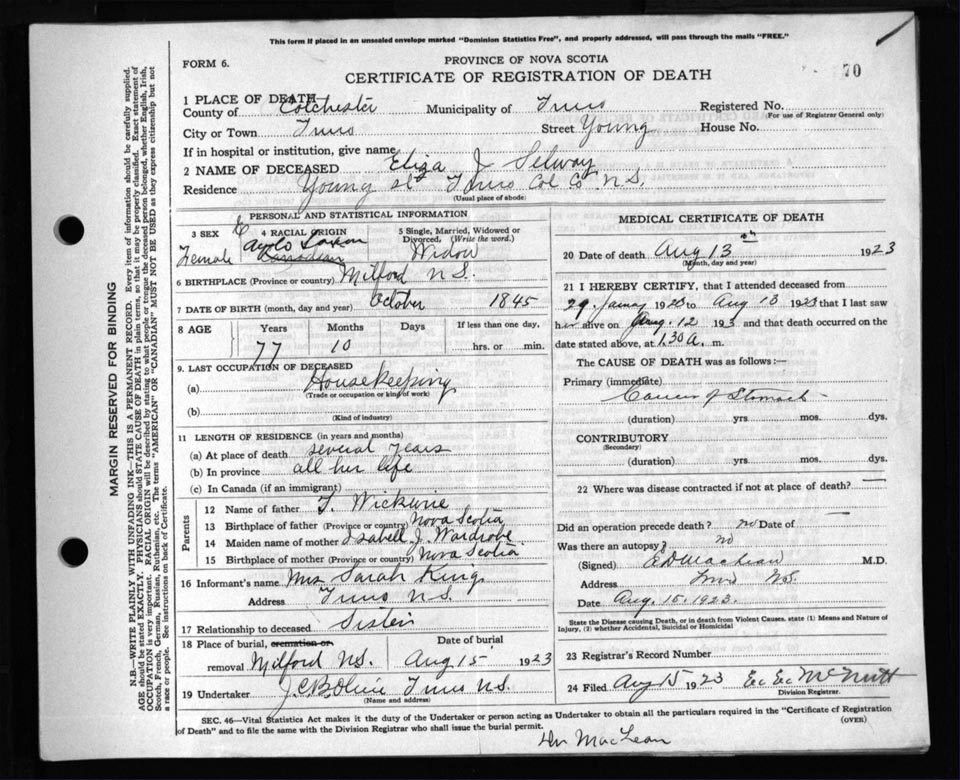 This form if placed in an unsealed envelope marked "Dominion Statistics Free", and properly addressed, will pass through the mails "FREE."
FORM 6.
PROVINCE OF NOVA SCOTIA
CERTIFICATE OF REGISTRATION OF DEATH
70
1 PLACE OF DEATH
County of Colchester Municipality of Truro Registered No.
(For use of Registrar General only)
City or Town Truro Street Young House No.
If in hospital or institution, give name
2 NAME OF DECEASED Eliza J Selway
Residence Young St Truro Col Co N.S.
(Usual place of abode)
PERSONAL AND STATISTICAL INFORMATION
3 SEX Female
4 RACIAL ORIGIN Anglo Saxon Canadian
5 Single, Married, Widowed or Divorced, (Write the word.) Widow
6 BIRTHPLACE (Province or Country) Milford N.S.
7 DATE OF BIRTH (month, day and year) October 1845
8 AGE Years Months Days If less than one day,
77 10 hrs. or min.
9. LAST OCCUPATION OF DECEASED
(a) Housekeeping
(Trade or occupation or kind of work)
(b)
(Kind of industry)
11 LENGTH OF RESIDENCE (in years and months)
(a) At place of death several years
(b) In province all her life
(c) In Canada (if an immigrant)
Parents
12 Name of father
13 Birthplace of father (Province or country) Nova Scotia
14 Maiden name of mother Isabell J. Wardrobe
15 Birthplace of mother (Province or country) Nova Scotia
16 Informant's name Mrs Sarah King
Address Truro N.S.
17 Relationship to deceased Sister
18 Place of burial, cremation or removal Milford N.S.
Date of burial Aug 15 1923
19 Undertaker Truro N.S.
(Name and address)
MEDICAL CERTIFICATE OF DEATH
20 Date of death Aug 13th 1923
(Month, day and year)
21 I HEREBY CERTIFY, that I attended deceased from
29 1923 to Aug 13 1923 that I last saw
her alive on Aug. 12 1923 and that death occurred on
date stated above, at 1.30 a. m.
The CAUSE OF DEATH was as follows:—
Primary (immediate)
Cancer of Stomach
(duration) yrs mos. dys.
CONTRIBUTORY
(Secondary)
(duration) yrs mos. dys.
22 Where was disease contracted if not at place of death? —
Did an operation precede death? no Date of —
Was there an autopsy? no
(Signed) E D MacLean M.D.
Address Truro N.S.
Date Aug. 15. 1923.
State the Disease causing Death, or in death from Violent Causes, state (1) Means and Nature of Injury, (2) whether Accidental, Suicidal or Homicidal
23 Registrar's Record Number
24 Filed Aug 15 1923 McNutt
Division Registrar.
SEC. 46—Vital Statistics Act makes it the duty of the Undertaker or person acting as Undertaker to obtain all the particulars required in the "Certificate of Registration
of Death" and to file the same with the Division Registrar who shall issue the burial permit.
(OVER)
Dr MacLean
MARGIN RESERVED FOR BINDING
N.B.—WRITE PLAINLY WITH UNFADING INK—THIS IS A PERMANENT RECORD. Every item of information should be carefully supplied.
AGE should be stated EXACTLY. PHYSICIANS should STATE CAUSE OF DEATH in plain terms, so that it may be properly classified. Exact statement of
OCCUPATION is very important. RACIAL ORIGIN will be described by stating to what people or tongue the deceased person belonged, whether English, Irish,
Scotch, French, German, Russian, Ruthenian, etc. The terms "AMERICAN" OR "CANADIAN" MUST NOT BE USED as they express citizenship but not
a race or people. See instructions on back of Certificate.